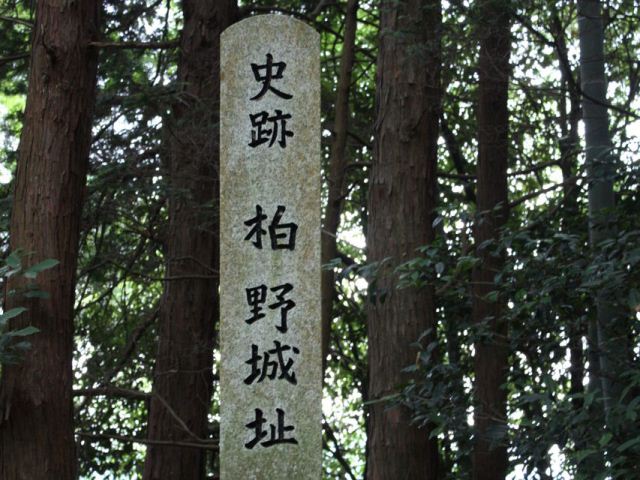 史跡 柏野城址